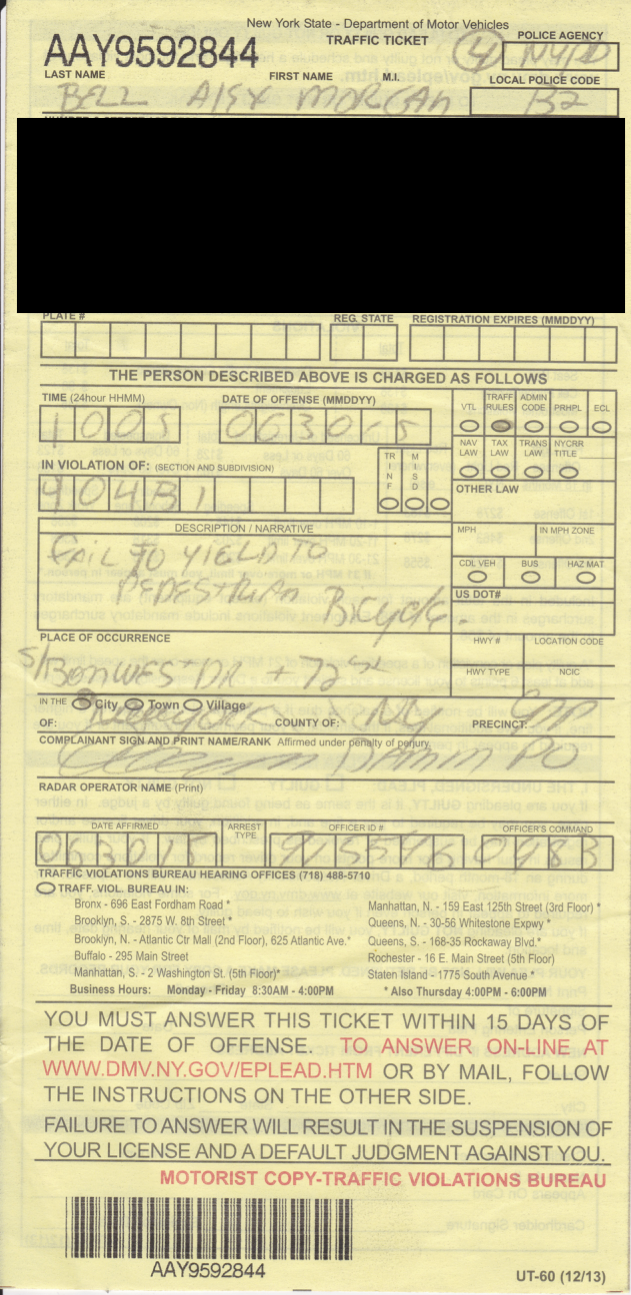 New York State - Department of Motor Vehicles
AAY9592844
TRAFFIC TICKET
4
POLICE AGENCY
NYPD
LAST NAME FIRST NAME M.I.
LOCAL POLICE CODE
BELL ALEX MORGAN
B2
PLATE # REG. STATE REGISTRATION EXPIRES (MMDDYY)
THE PERSON DESCRIBED ABOVE IS CHARGED AS FOLLOWS
TIME (24hour HHMM) DATE OF OFFENSE (MMDDYY)
1005 063015
VTL TRAFF RULES ADMIN CODE PRHPL ECL
NAV LAW TAX LAW TRANS LAW NYCRR TITLE
IN VIOLATION OF: (SECTION AND SUBDIVISION)
TRINF MISD
404B1
OTHER LAW
DESCRIPTION / NARRATIVE
MPH IN MPH ZONE
FAIL TO YIELD TO
PEDESTRIAN
BICYCLE.
CDL VEH BUS HAZ MAT
US DOT#
PLACE OF OCCURRENCE
HWY # LOCATION CODE
S/B ON WEST DR + 72 St
HWY TYPE NCIC
IN THE City Town Village
OF: New York COUNTY OF: NY PRECINCT: CPP
COMPLAINANT SIGN AND PRINT NAME/RANK Affirmed under penalty of perjury
PO
RADAR OPERATOR NAME (Print)
DATE AFFIRMED ARREST TYPE OFFICER ID # OFFICER'S COMMAND
063015 915546 0983
TRAFFIC VIOLATIONS BUREAU HEARING OFFICES (718) 488-5710
TRAFF. VIOL. BUREAU IN:
Bronx - 696 East Fordham Road *
Brooklyn, S. - 2875 W. 8th Street *
Brooklyn, N. - Atlantic Ctr Mall (2nd Floor), 625 Atlantic Ave.*
Buffalo - 295 Main Street
Manhattan, S. - 2 Washington St. (5th Floor)*
Manhattan, N. - 159 East 125th Street (3rd Floor) *
Queens, N. - 30-56 Whitestone Expwy *
Queens, S. - 168-35 Rockaway Blvd.*
Rochester - 16 E. Main Street (5th Floor)
Staten Island - 1775 South Avenue *
Business Hours: Monday - Friday 8:30AM - 4:00PM * Also Thursday 4:00PM - 6:00PM
YOU MUST ANSWER THIS TICKET WITHIN 15 DAYS OF
THE DATE OF OFFENSE. TO ANSWER ON-LINE AT
WWW.DMV.NY.GOV/EPLEAD.HTM OR BY MAIL, FOLLOW
THE INSTRUCTIONS ON THE OTHER SIDE.
FAILURE TO ANSWER WILL RESULT IN THE SUSPENSION OF
YOUR LICENSE AND A DEFAULT JUDGMENT AGAINST YOU.
MOTORIST COPY-TRAFFIC VIOLATIONS BUREAU
AAY9592844
UT-60 (12/13)